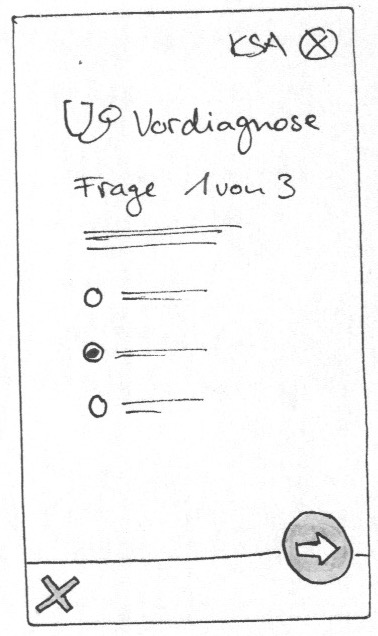 KSA
Vordiagnose
Frage 1 von 3